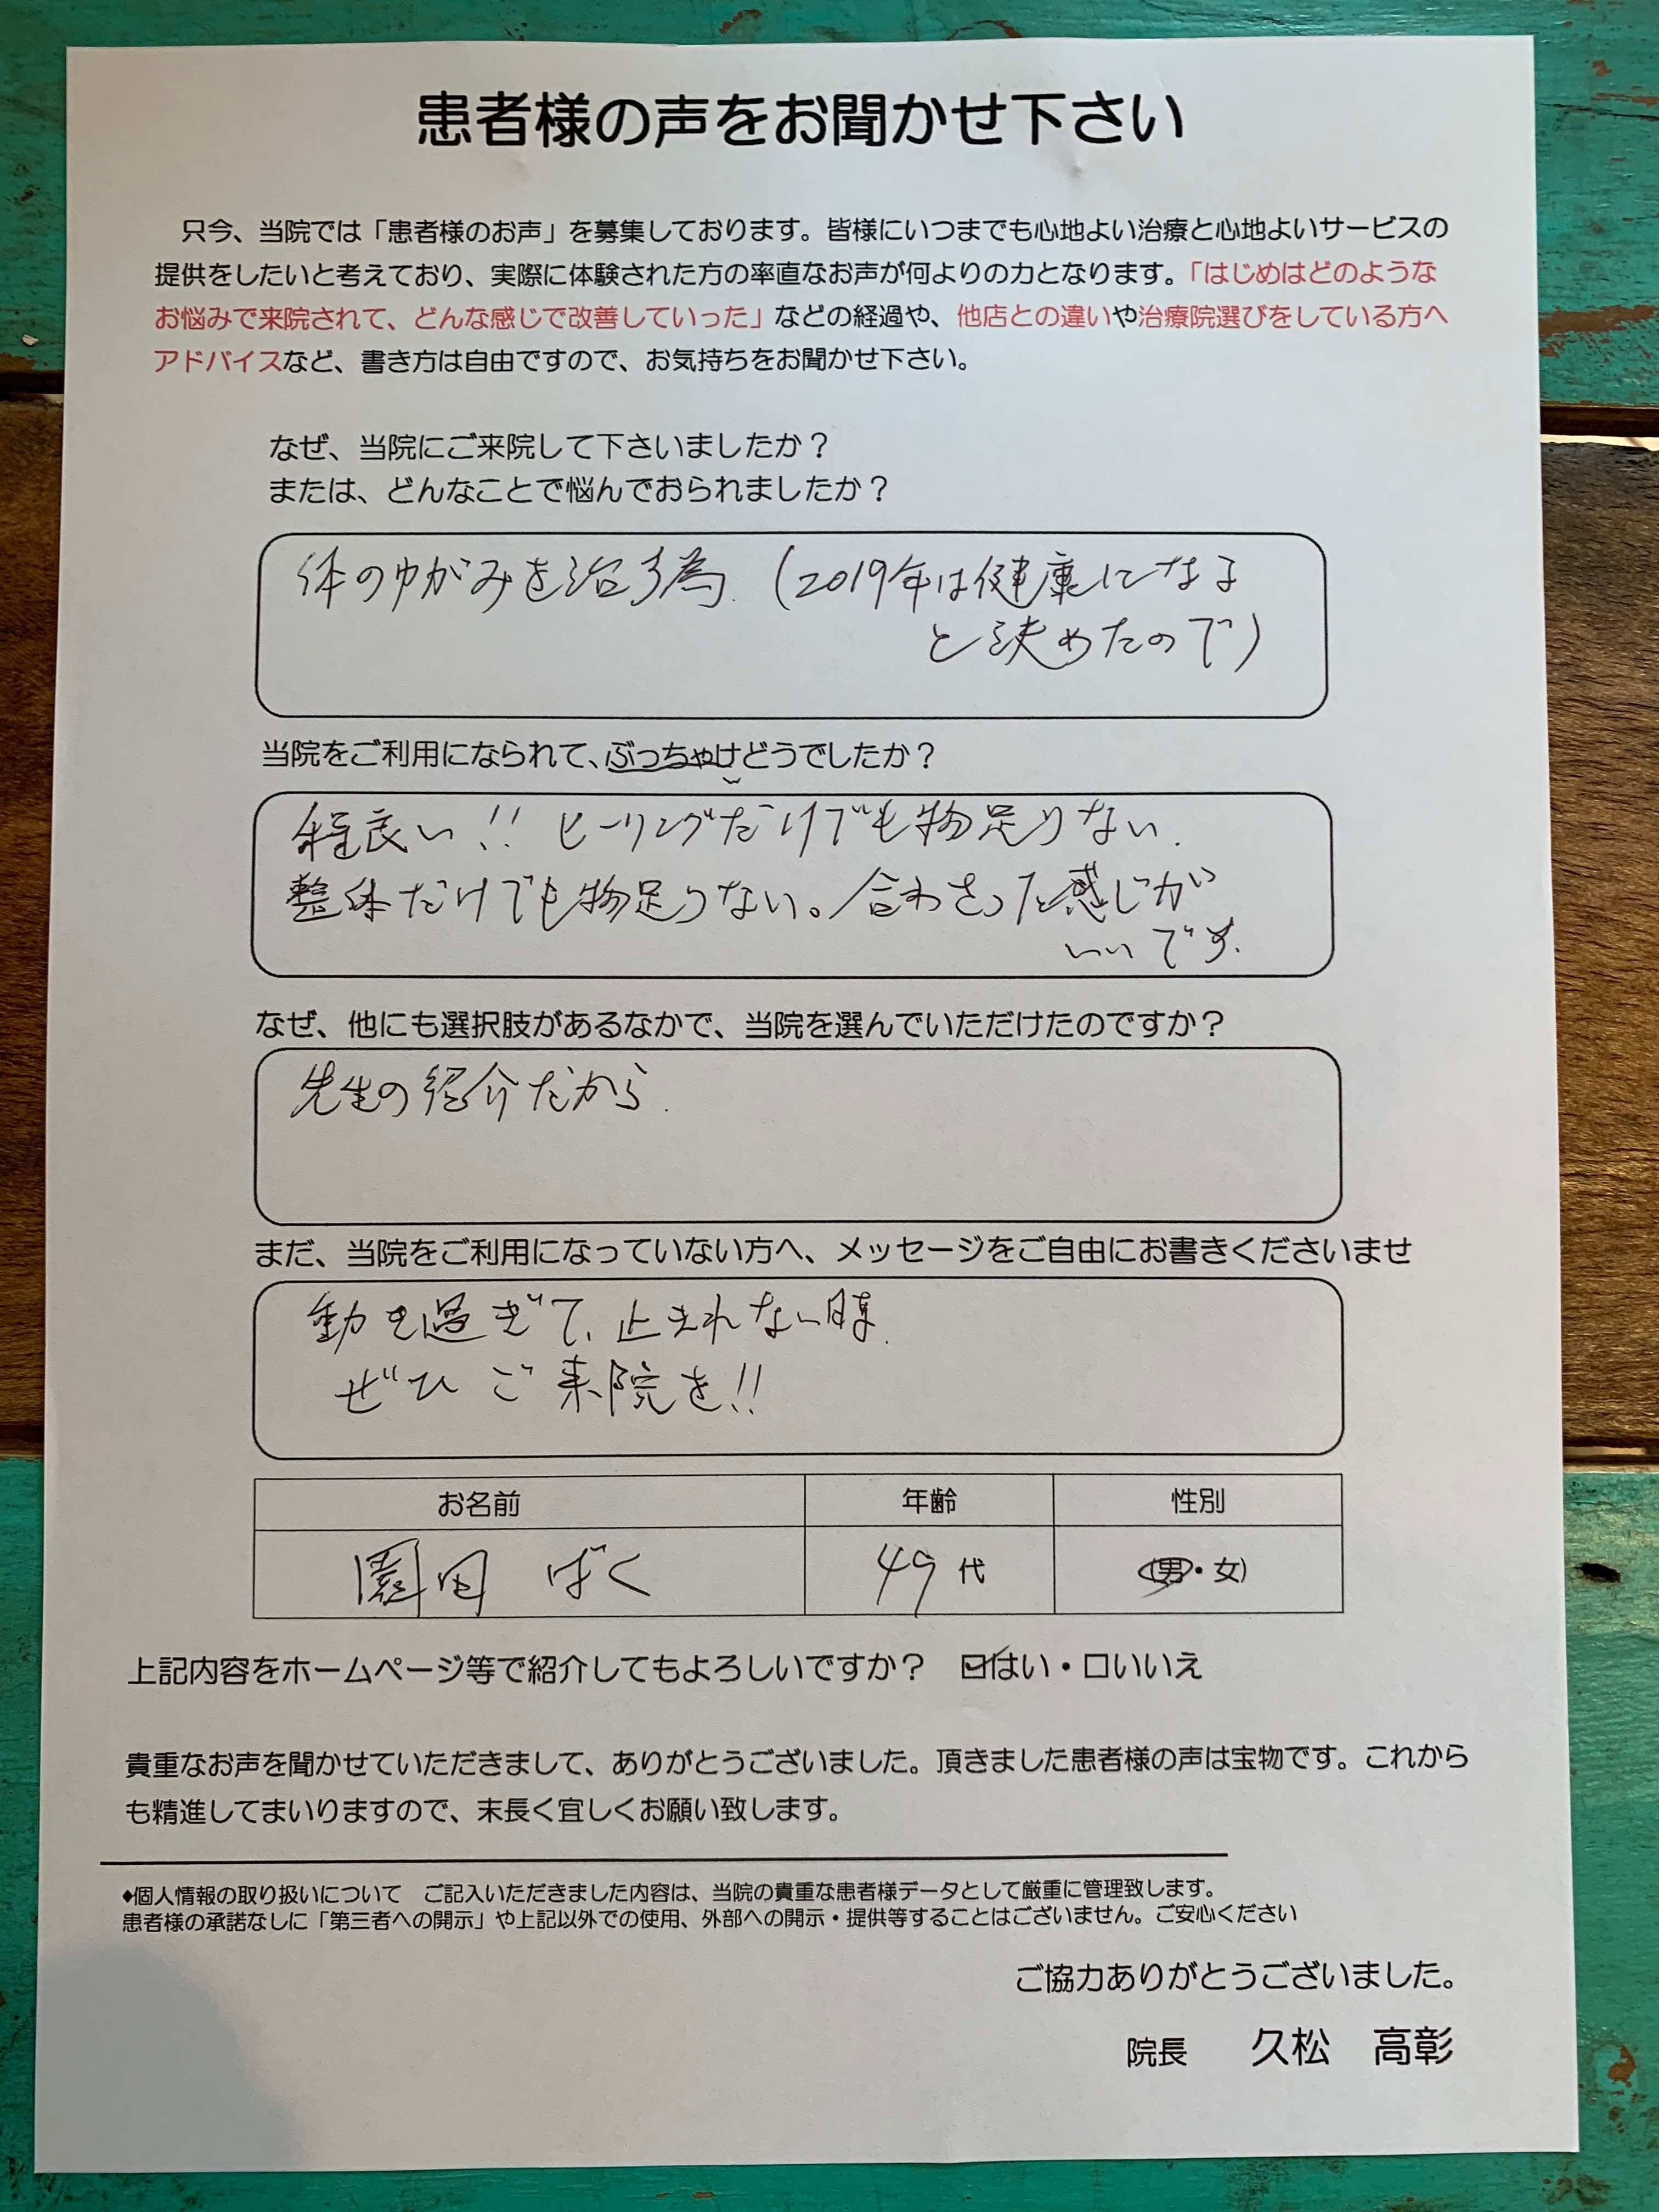 患者様の声をお聞かせ下さい
只今、当院では「患者様のお声」を募集しております。皆様にいつまでも心地よい治療と心地よいサービスの
提供をしたいと考えており、実際に体験された方の率直なお声が何よりの力となります。「はじめはどのような
お悩みで来院されて、どんな感じで改善していった」などの経過や、他店との違いや治療院選びをしている方へ
アドバイスなど、書き方は自由ですので、お気持ちをお聞かせ下さい。
なぜ、当院にご来院して下さいましたか？
または、どんなことで悩んでおられましたか？
体のゆがみを治す為.（2019年は健康になる
と決めたので）
当院をご利用になられて、ぶっちゃけどうでしたか？
程良い!! ヒーリングだけでも物足りない.
整体だけでも物足りない。合わさった感じが
いいです.
なぜ、他にも選択肢があるなかで、当院を選んでいただけたのですか？
先生の紹介だから.
まだ、当院をご利用になっていない方へ、メッセージをご自由にお書きくださいませ
動き過ぎて、止まれない時.
ぜひ ご来院を!!
お名前 年齢 性別
園田 ばく 49代 (男・女)
上記内容をホームページ等で紹介してもよろしいですか？ ☑はい・□いいえ
貴重なお声を聞かせていただきまして、ありがとうございました。頂きました患者様の声は宝物です。これから
も精進してまいりますので、末長く宜しくお願い致します。
◆個人情報の取り扱いについて ご記入いただきました内容は、当院の貴重な患者様データとして厳重に管理致します。
患者様の承諾なしに「第三者への開示」や上記以外での使用、外部への開示・提供等することはございません。ご安心ください
ご協力ありがとうございました。
院長 久松 高彰